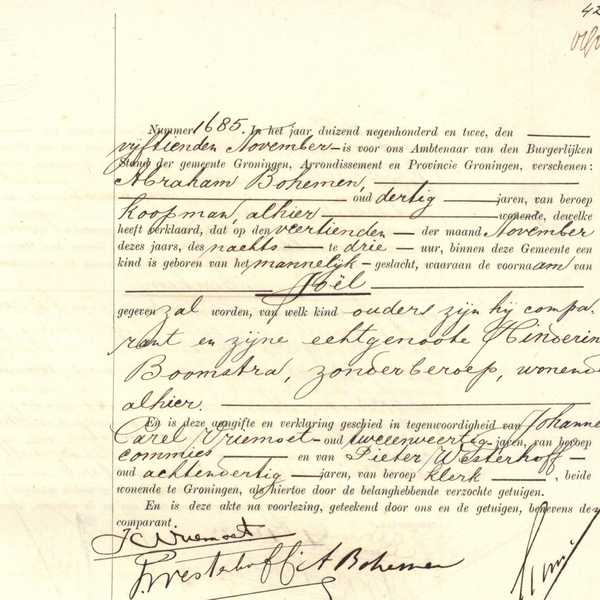 42
Nummer 1685. In het jaar duizend negenhonderd en twee, den
vijftienden November — is voor ons Ambtenaar van den Burgerlijken
Stand der gemeente Groningen, Arrondissement en Provincie Groningen, verschenen:
Abraham Bohemen,
oud dertig jaren, van beroep
koopman, alhier wonende, dewelke
heeft verklaard, dat op den veertienden — der maand November
dezes jaars, des nachts — te drie — uur, binnen deze Gemeente een
kind is geboren van het mannelijk — geslacht, waaraan de voornaam van
Joël
gegeven zal worden, van welk kind ouders zijn hij compa-
rant en zijne echtgenoote Hinderin
Boomstra, zonder beroep, wonend
alhier.
En is deze aangifte en verklaring geschied in tegenwoordigheid van Johanne
Carel Vriemoet — oud tweeenveertig — jaren, van beroep
commies — en van Pieter Westerhoff —
oud achtendertig — jaren, van beroep klerk —, beide
wonende te Groningen, als hiertoe door de belanghebbende verzochte getuigen.
En is deze akte na voorlezing, geteekend door ons en de getuigen, benevens de
comparant.
JC Vriemoet
P. Westerhoff A Bohemen